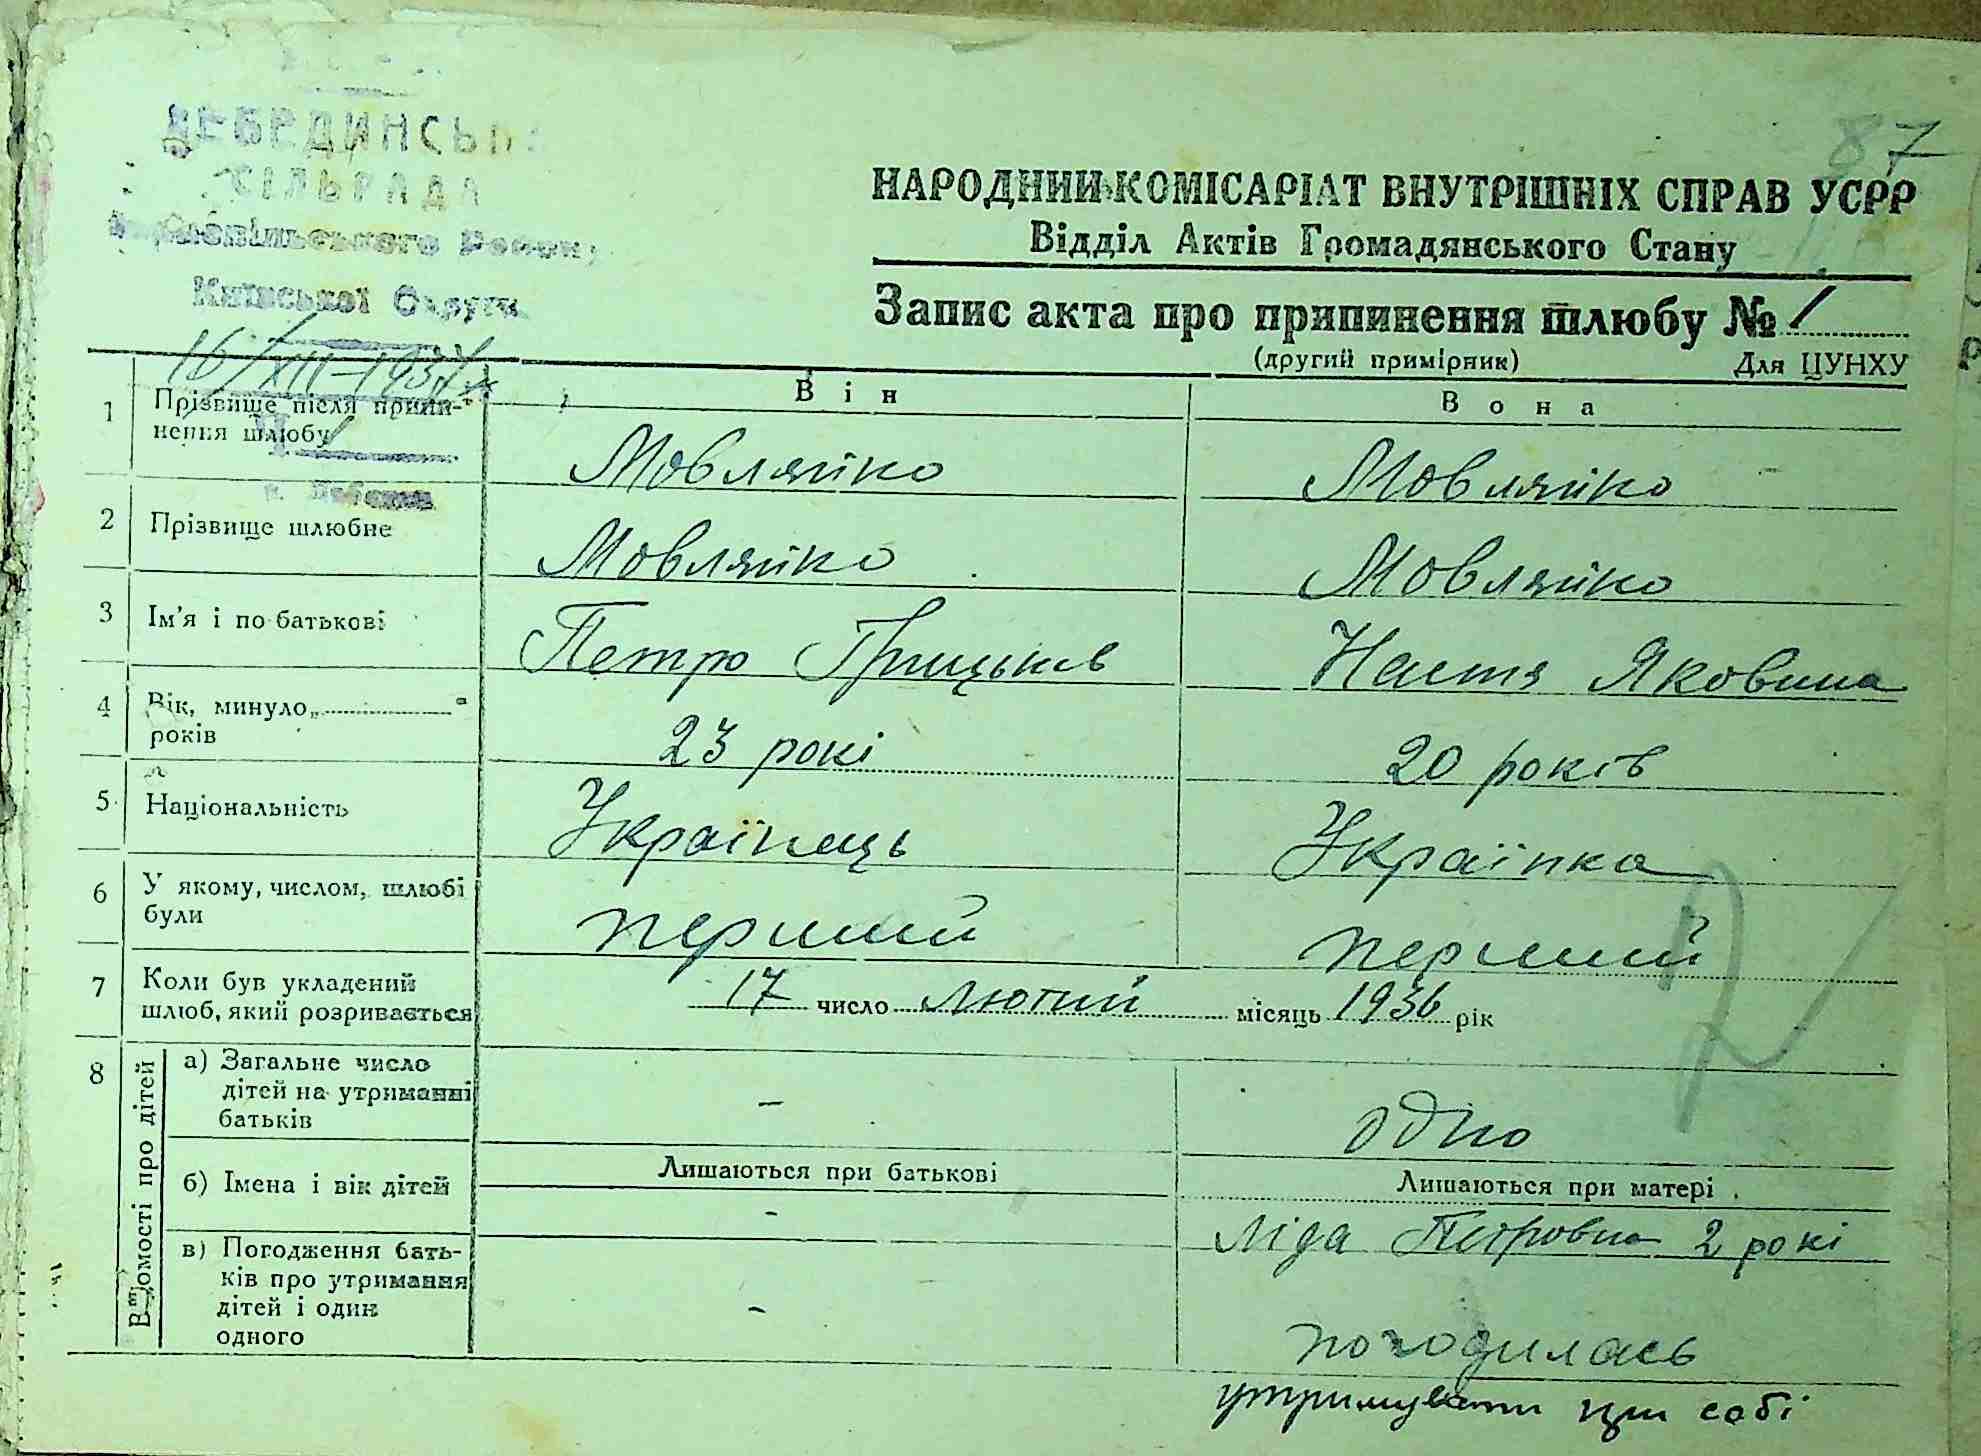 87
ЛЕБЕДИНСЬКА
СІЛЬРАДА
Бориспільського Району
Київської Округи
16/XII-1937
НАРОДНИЙ КОМІСАРІАТ ВНУТРІШНІХ СПРАВ УСРР
Відділ Актів Громадянського Стану
Запис акта про припинення шлюбу № 1
(другий примірник) Для ЦУНХУ
Він Вона
1 Прізвище після припи-
нення шлюбу Мовляйко Мовляйко
2 Прізвище шлюбне Мовляйко Мовляйко
3 Ім'я і по батькові Петро Грицьків Настя Яковина
4 Вік, минуло „ “
років 23 рокі 20 років
5 Національність Українець Українка
6 У якому, числом, шлюбі
були перший перший
7 Коли був укладений
шлюб, який розривається 17 число лютий місяць 1936 рік
8 Відомості про дітей
а) Загальне число
дітей на утриманні
батьків - одно
Лишаються при батькові Лишаються при матері
б) Імена і вік дітей - Ліда Петровна 2 рокі
в) Погодження бать-
ків про утримання
дітей і один
одного - погодилась
утримувати при собі